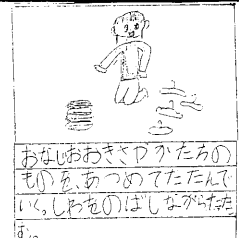 おなじおおきさやかたちの
ものを、あつめてたたんで
いく。しわをのばしながらたた
む。